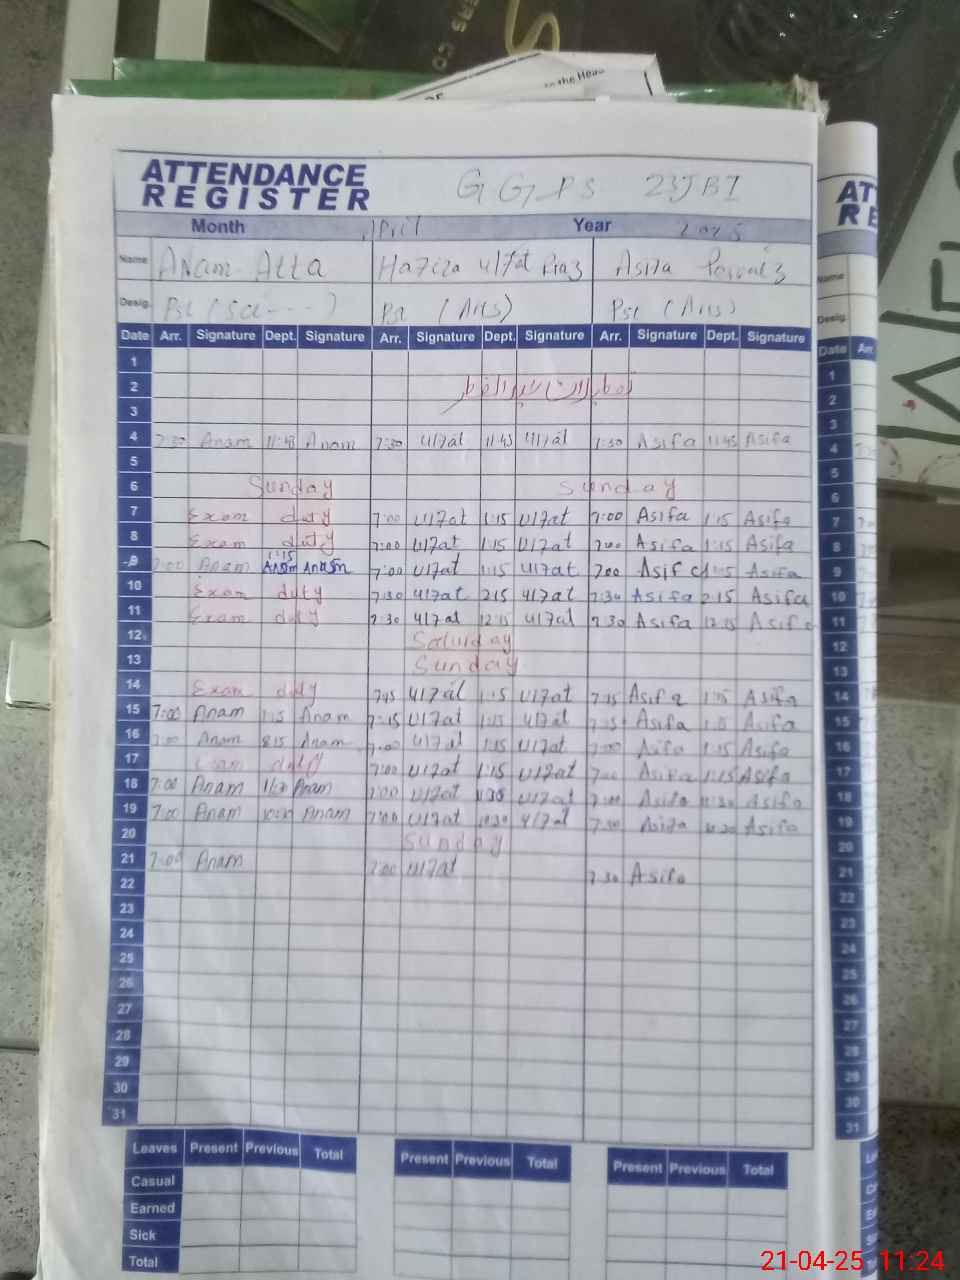 to the Head
ATTENDANCE
REGISTER
GGPS 23JBI
Month April Year 2025
Name Anam Atta Hafiza Ulfat Riaz Asifa Pervaiz
Desig. Pst (Sci---) Pst (Arts) Pst (Arts)
Date Arr. Signature Dept. Signature Arr. Signature Dept. Signature Arr. Signature Dept. Signature
1
2 تعطیلات عیدالفطر
3
4 7:30 Anam 11:45 Anam 7:30 Ulfat 11:45 Ulfat 7:30 Asifa 11:45 Asifa
5
6 Sunday Sunday
7 Exam duty 7:00 Ulfat 1:15 Ulfat 7:00 Asifa 1:15 Asifa
8 Exam duty 7:00 Ulfat 1:15 Ulfat 7:00 Asifa 1:15 Asifa
9 7:00 Anam 1:15 Anam Anam 7:00 Ulfat 1:15 Ulfat 7:00 Asifa 1:15 Asifa
10 Exam duty 7:30 Ulfat 2:15 Ulfat 7:30 Asifa 2:15 Asifa
11 Exam duty 7:30 Ulfat 12:15 Ulfat 7:30 Asifa 12:15 Asifa
12 Saturday
13 Sunday
14 Exam duty 7:45 Ulfat 1:15 Ulfat 7:15 Asifa 1:15 Asifa
15 7:00 Anam 1:15 Anam 7:15 Ulfat 1:15 Ulfat 7:15 Asifa 1:15 Asifa
16 7:00 Anam Anam 7:00 Ulfat 1:15 Ulfat 7:00 Asifa 1:15 Asifa
17 Exam duty 7:00 Ulfat 1:15 Ulfat 7:00 Asifa 1:15 Asifa
18 7:00 Anam Anam 7:00 Ulfat 11:30 Ulfat 7:00 Asifa 11:30 Asifa
19 7:00 Anam 10:30 Anam 7:00 Ulfat 10:30 Ulfat 7:30 Asifa 10:30 Asifa
20 Sunday
21 7:00 Anam 7:00 Ulfat 7:30 Asifa
22
23
24
25
26
27
28
29
30
31
Leaves Present Previous Total Present Previous Total Present Previous Total
Casual
Earned
Sick
Total
21-04-25 11:24